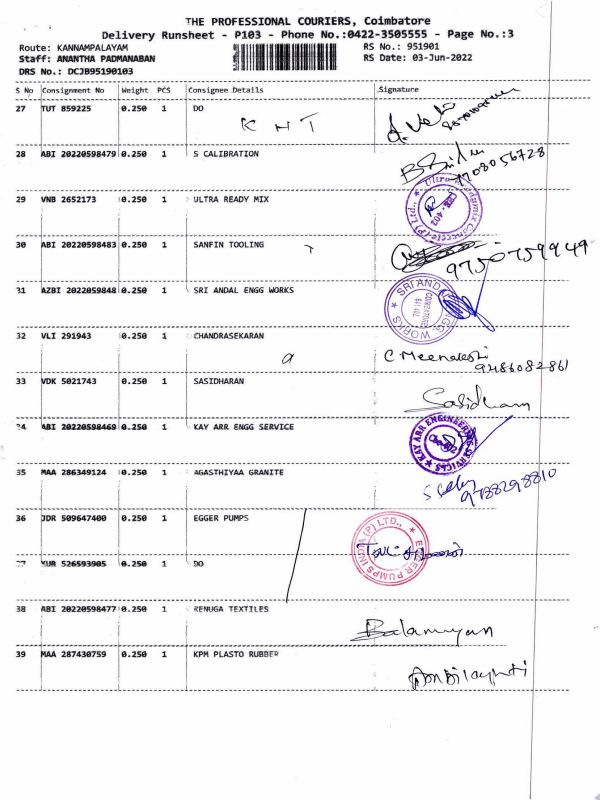 THE PROFESSIONAL COURIERS, Coimbatore
Delivery Runsheet - P103 - Phone No.:0422-3505555 - Page No.:3
Route: KANNAMPALAYAM RS No.: 951901
Staff: ANANTHA PADMANABAN RS Date: 03-Jun-2022
DRS No.: DCJB95190103
S No Consignment No Weight PCS Consignee Details Signature
27 TUT 859225 0.250 1 DO
KHT
28 ABI 20220598479 0.250 1 S CALIBRATION
9708056728
29 VNB 2652173 0.250 1 ULTRA READY MIX
30 ABI 20220598483 0.250 1 SANFIN TOOLING
9750759949
31 AZBI 2022059848 0.250 1 SRI ANDAL ENGG WORKS
SRI ANDAL ENGG. WORKS
32 VLI 291943 0.250 1 CHANDRASEKARAN
a C Meenakshi
9486082861
33 VDK 5021743 0.250 1 SASIDHARAN
Sasidharan
34 ABI 20220598469 0.250 1 KAY ARR ENGG SERVICE
KAY ARR ENGINEERING SERVICES
35 MAA 286349124 0.250 1 AGASTHIYAA GRANITE
9788298810
36 JDR 509647400 0.250 1 EGGER PUMPS
EGGER PUMPS INDIA (P) LTD.,
37 KUB 526593905 0.250 1 DO
38 ABI 20220598477 0.250 1 RENUGA TEXTILES
Balamuyan
39 MAA 287430759 0.250 1 KPM PLASTO RUBBER